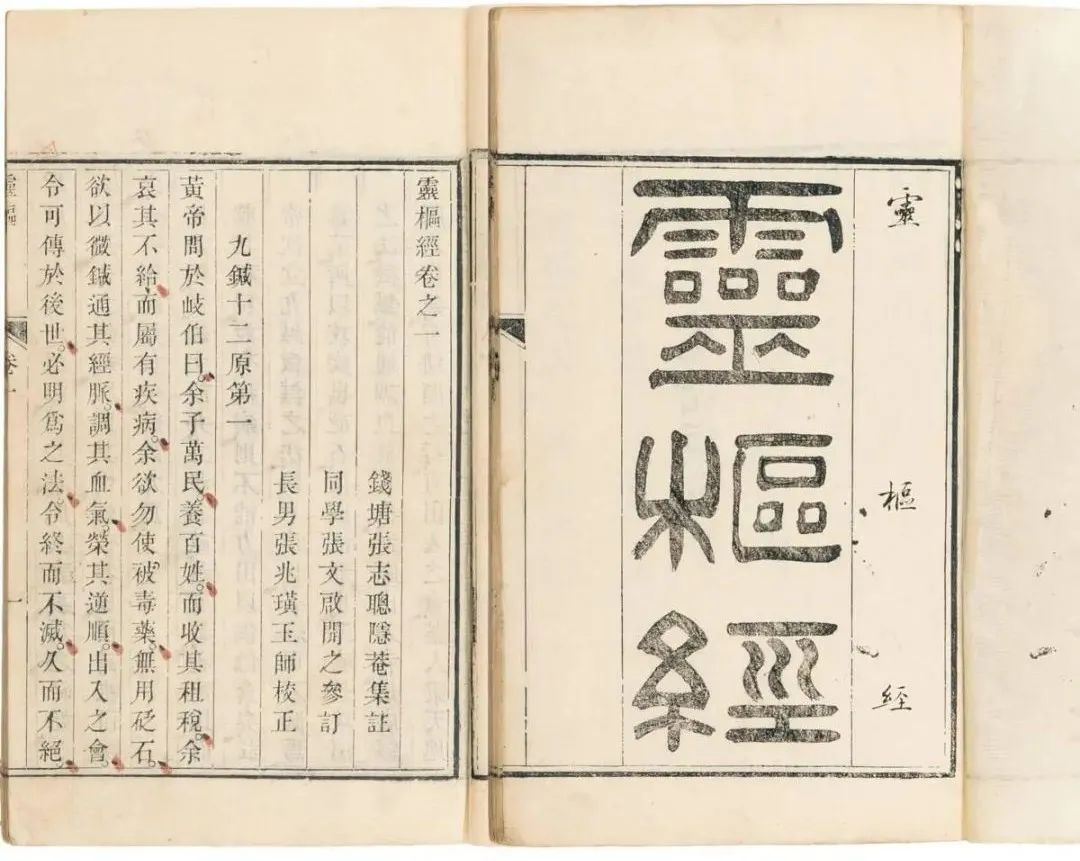 靈樞經
靈樞經
靈樞經卷之一
錢塘張志聰隱菴集註
同學張文啟開之參訂
長男張兆璜玉師校正
九鍼十二原第一
黃帝問於岐伯曰。余子萬民。養百姓。而收其租稅。余
哀其不給。而屬有疾病。余欲勿使被毒藥。無用砭石。
欲以微鍼通其經脈。調其血氣。榮其逆順。出入之會。
令可傳於後世。必明爲之法。令終而不滅。久而不絕。
靈樞 卷一 一